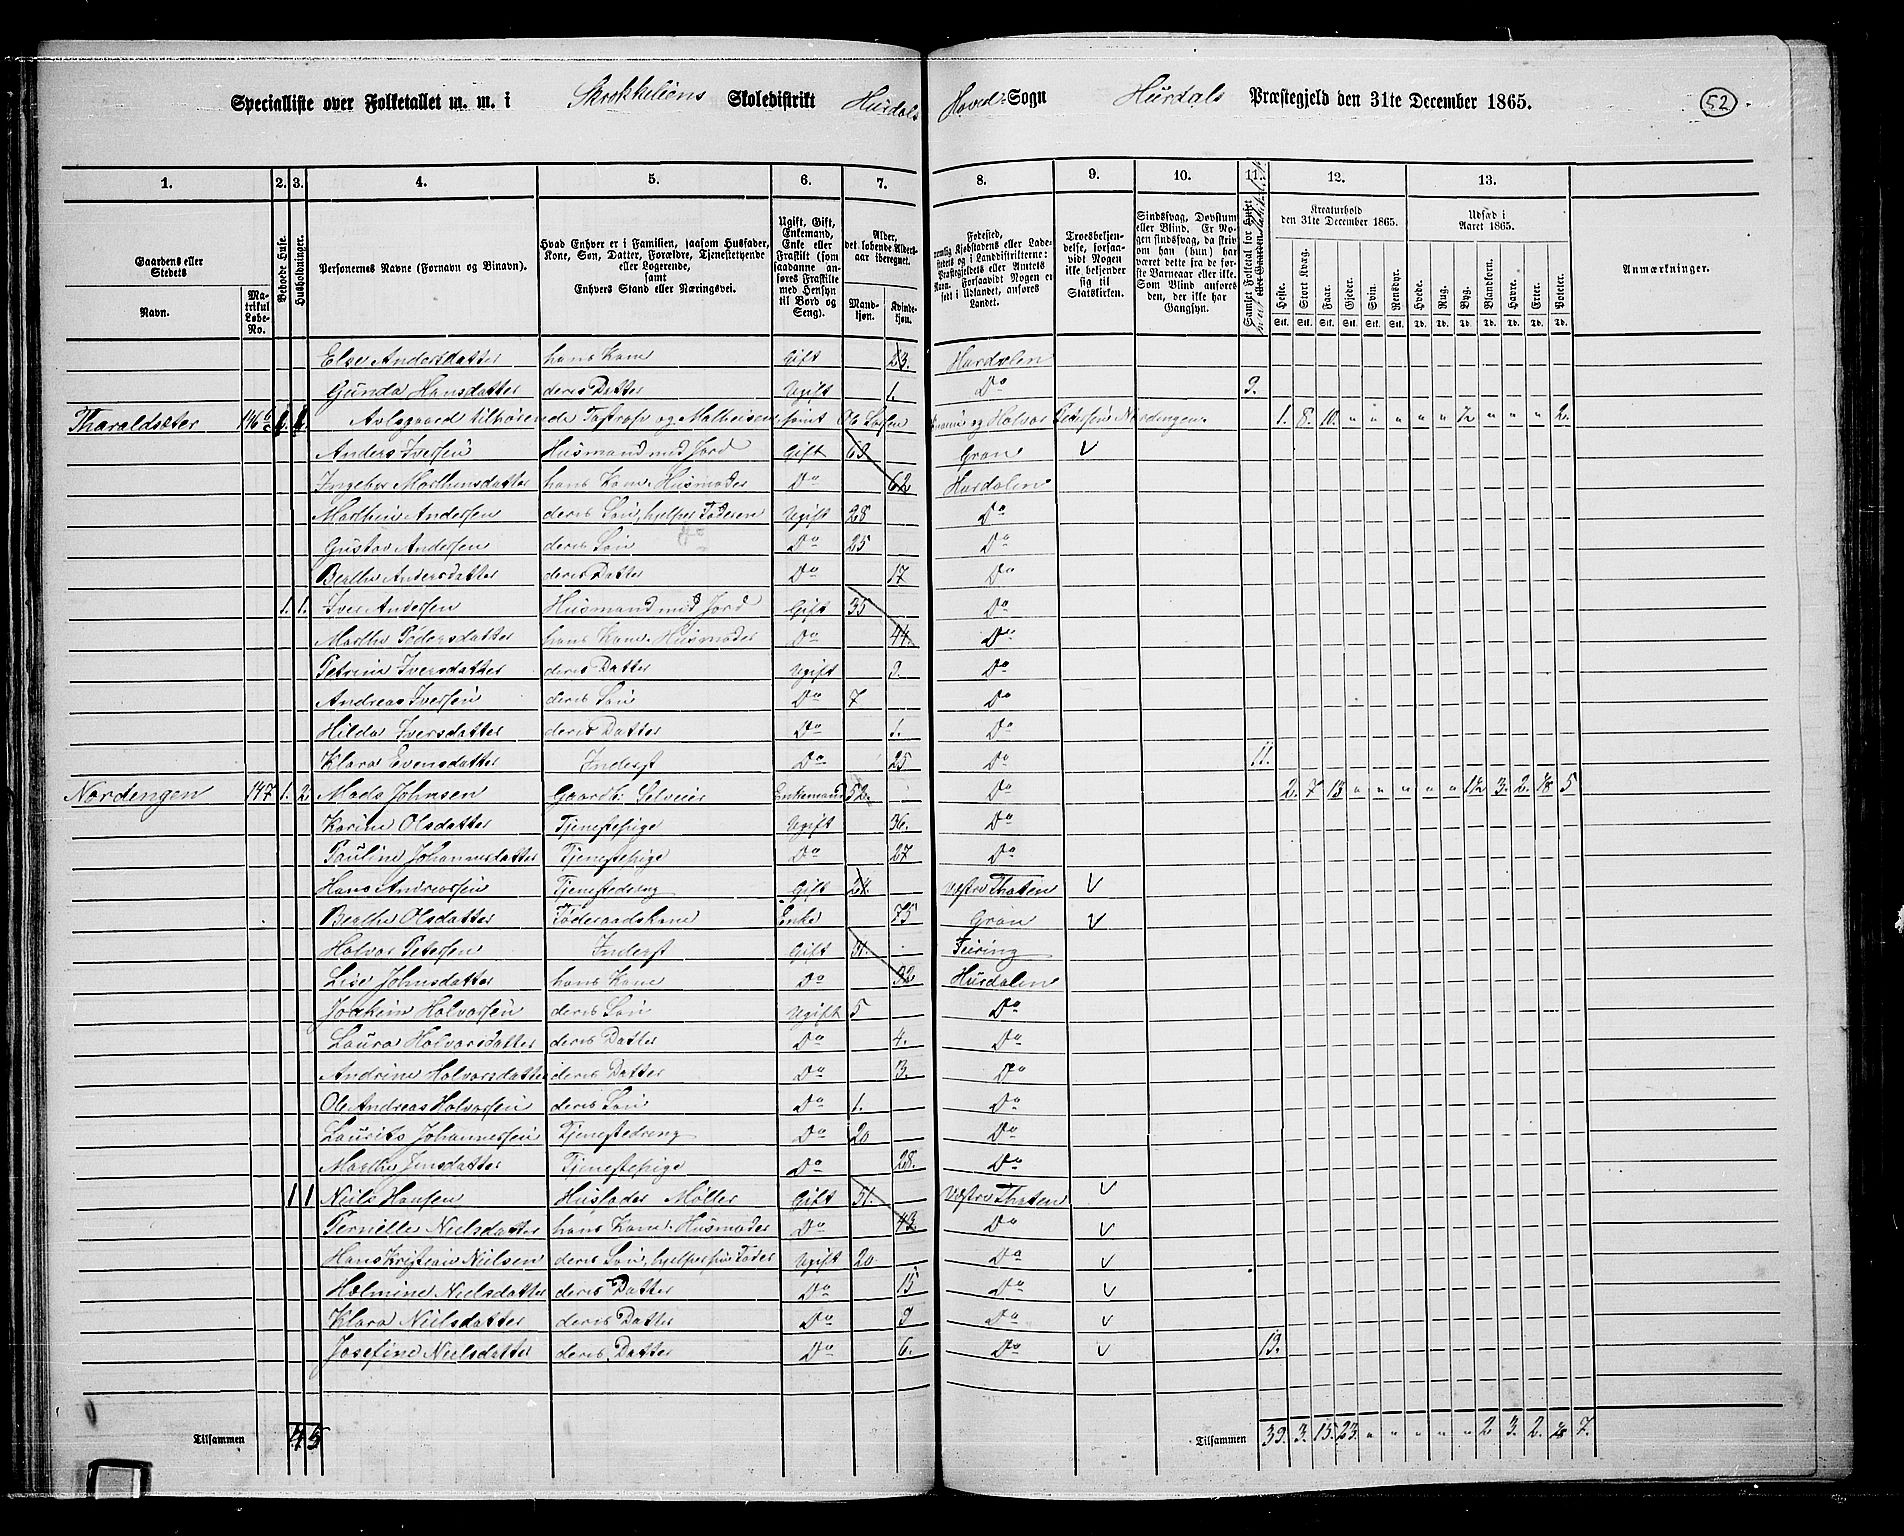 Specialliste over Folketallet m. m. i Skrokkeliens Skoledistrikt Hurdals Hoved-Sogn Hurdals Præstegjeld den 31te December 1865. 52
1. 2. 3. 4. 5. 6. 7. 8. 9. 10. 11. 12. 13.
Gaardens eller Stedets
Navn.
Matrikul Løbe-No.
Beboede Huse.
Husholdninger.
Personernes Navne (Fornavn og Binavn).
Hvad Enhver er i Familien, saasom Husfader, Kone, Søn, Datter, Forældre, Tjenestetyende eller Logerende, samt Enhvers Stand eller Næringsvei.
Ugift, Gift, Enkemand, Enke eller Fraskilt (som saadanne anføres Fraskilte med Hensyn til Bord og Seng).
Alder, det løbende Aldersaar iberegnet.
Mandkjøn.
Kvindekjøn.
Fødested,
Troesbekjendelse, forsaavidt Nogen ikke bekjender sig til Statskirken.
Sindssvag, Døvstum eller Blind. Er Nogen sindssvag, da skrives om han (hun) har været dette fra de første Barneaar eller ikke. Som Blind anføres den, der ikke har Gangsyn.
Kreaturhold den 31te December 1865.
Heste. Stort Kvæg. Faar. Gjeder. Svin. Rensdyr.
Udsæd i Aaret 1865.
Hvede. Rug. Byg. Blandkorn. Havre. Erter. Poteter.
Anmærkninger.
Else Andersdatter hans Kone Gift 23. Hurdalen
Gunda Hansdatter deres Datter Ugift 1. Do 9.
Tharaldsæter 146 Avlsgaard tilhørende og Mathisen samt Ole og Halvor Pedersen Nordengen. 1. 8. 10. " " " " " ½ " " " 2.
Anders Iversen Husmand med Jord Gift 63 Gran V
Ingebor Mathisdatter hans Kone. Husmoder Do 62 Hurdalen
Andersen deres Søn, hjelper Faderen Ugift 28 Do
Gustav Andersen deres Søn Do 25 Do
Berthe Andersdatter deres Datter Do 17 Do
1. 1. Iver Andersen Husmand med Jord Gift 35 Do
Marthe Pedersdatter hans Kone. Husmoder Do 44. Do
Petrine Iversdatter deres Datter Ugift 9. Do
Andreas Iversen deres Søn Do 7 Do
Hilda Iversdatter deres Datter Do 1. Do
Klara Evensdatter Inderst Do 25 Do 11.
Nordengen 147 1. 2 Mads Johnsen Gaardb. Selveier Enkemand 52. Do 2. 7 13 " " " " " 1½ 3. 2. ⅛ 5
Karine Olsdatter Tjenestepige Ugift 36. Do
Pauline Johannesdatter Tjenestepige Do 27 Do
Hans Andreassen Tjenestedreng Gift 24. Vestre Thoten V
Berthe Olsdatter Føderaadskone Enke 75 Gran V
Halvor Petersen Inderst Gift Feiring
Lise Johnsdatter hans Kone Do 32 Hurdalen
Joakim Halvorsen deres Søn Ugift 5 Do
Laura Halvorsdatter deres Datter Do 4. Do
Andrine Halvorsdatter deres Datter Do 3. Do
Ole Andreas Halvorsen deres Søn Do 1. Do
Laurits Johannessen Tjenestedreng Do 20 Do
Marthe Jensdatter Tjenestepige Do 28. Do
1 1 Niels Hansen Husfader Møller Gift 51. Vestre Thoten V
Pernille Nielsdatter hans Kone. Husmoder Do 43. Do V
Hans Kristian Nielsen deres Søn, hjelper sin Fader Ugift 20 Do V
Holmine Nielsdatter deres Datter Do 15 Do V
Klara Nielsdatter deres Datter Do 9 Do V
Josefine Nielsdatter deres Datter Do 6. Do V 19.
Tilsammen 4 5 Tilsammen 39. 3. 15. 23. " " " " " 2 3. 2. ⅛ 7.